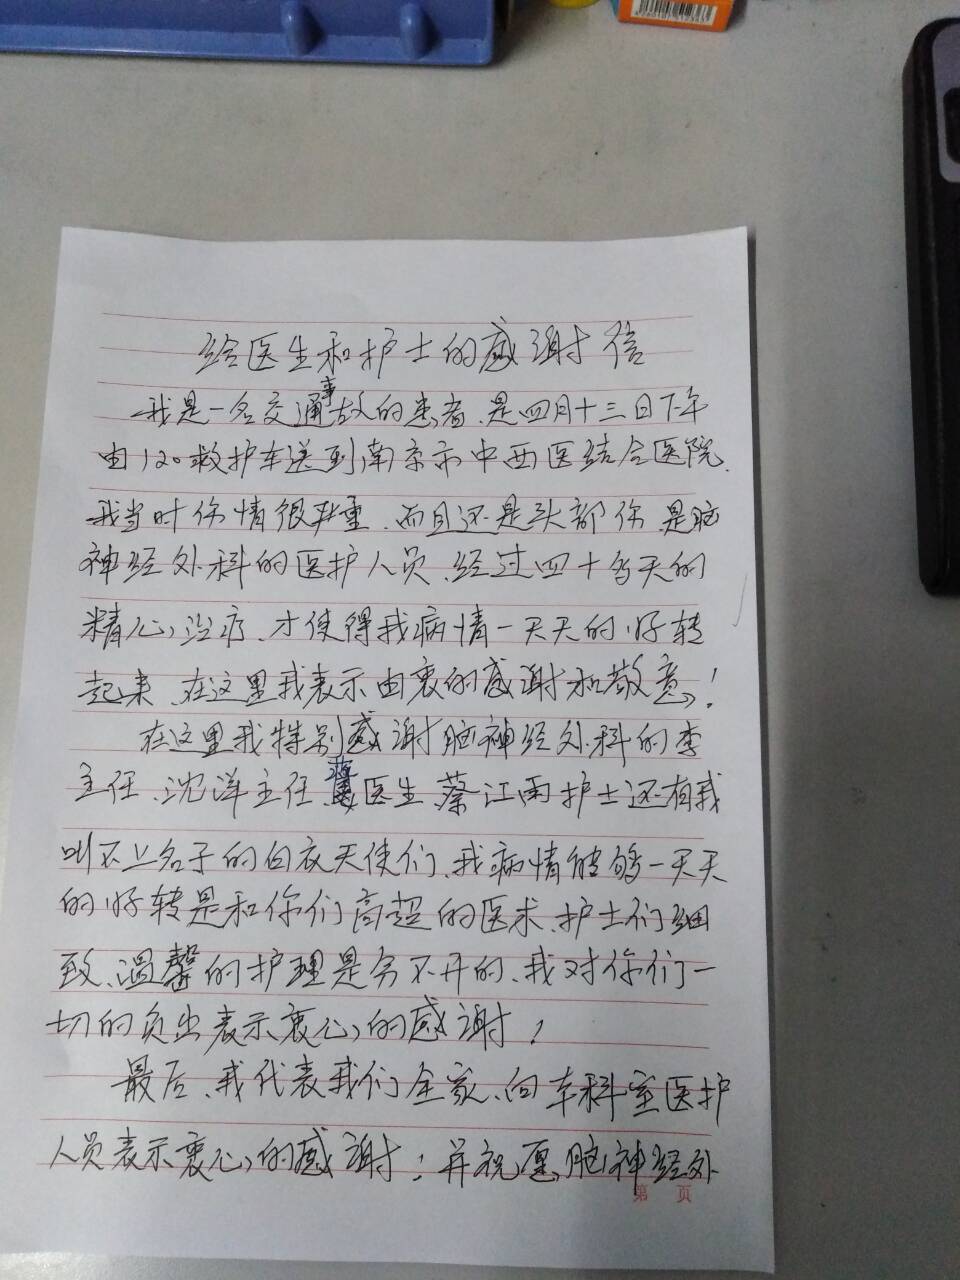 给医生和护士的感谢信
我是一名交通事故的患者、是四月十三日下午
由120救护车送到南京市中西医结合医院.
我当时伤情很严重、而且还是头部伤、是脑
神经外科的医护人员、经过四十多天的
精心治疗、才使得我病情一天天的好转
起来、在这里我表示由衷的感谢和敬意!
在这里我特别感谢脑神经外科的李
主任、沈洋主任、医生、蔡江南护士还有我
叫不上名子的白衣天使们、我病情能够一天天
的好转是和你们高超的医术、护士们细
致、温馨的护理是分不开的、我对你们一
切的负出表示衷心的感谢!
最后、我代表我们全家、向本科室医护
人员表示衷心的感谢!并祝愿脑神经外
第 页